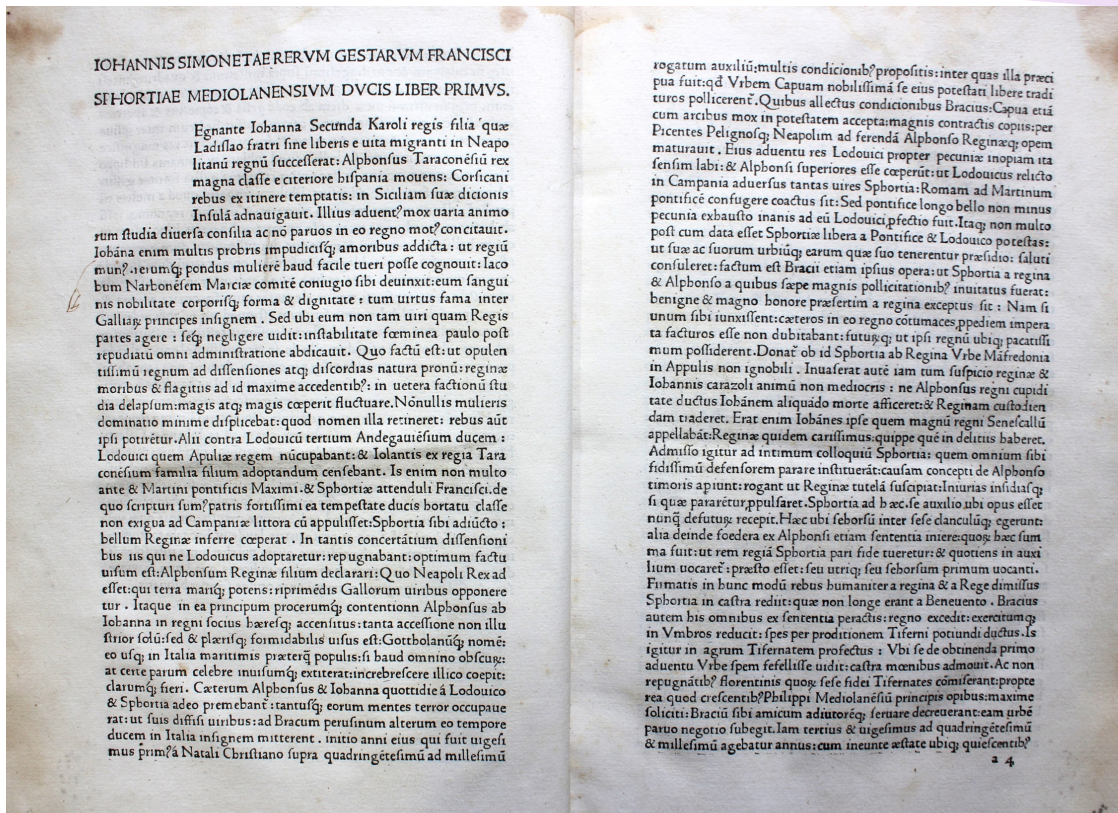 IOHANNIS SIMONETAE RERVM GESTARVM FRANCISCI
SPHORTIAE MEDIOLANENSIVM DVCIS LIBER PRIMVS.
Egnante Iohanna Secunda Karoli regis filia quæ
Ladislao fratri sine liberis e uita migranti in Neapo
litanũ regnũ successerat: Alphonsus Taraconẽsiũ rex
magna classe e citeriore hispania mouens: Corsicani
rebus ex itinere temptatis: in Siciliam suæ dicionis
Insulã adnauigauit. Illius aduentꝰ mox uaria animo
rum studia diuersa consilia ac nõ paruos in eo regno motꝰ concitauit.
Iohãna enim multis probris impudicisq; amoribus addicta: ut regiũ
munꝰ rerumq; pondus mulierẽ haud facile tueri posse cognouit: Iaco
bum Narbonẽsem Marciæ comitẽ coniugio sibi deuinxit: eum sangui
nis nobilitate corporisq; forma & dignitate: tum uirtus fama inter
Galliaꝝ principes insignem. Sed ubi eum non tam uiri quam Regis
partes agere: seq; negligere uidit: instabilitate fœminea paulo post
repudiatũ omni administratione abdicauit. Quo factũ est: ut opulen
tissimũ regnum ad dissensiones atq; discordias natura pronũ: reginæ
moribus & flagitiis ad id maxime accedentibꝰ: in uetera factionũ stu
dia delapsum: magis atq; magis cœperit fluctuare. Nõnullis mulieris
dominatio minime displicebat: quod nomen illa retineret: rebus aũt
ipsi potirẽtur. Alii contra Lodouicũ tertium Andegauiẽsium ducem:
Lodouici quem Apuliæ regem nũcupabant: & Iolantis ex regia Tara
conẽsium familia filium adoptandum censebant. Is enim non multo
ante & Martini pontificis Maximi. & Sphortiæ attenduli Francisci. de
quo scripturi sumꝰ patris fortissimi ea tempestate ducis hortatu classe
non exigua ad Campaniæ littora cũ appulisset: Sphortia sibi adiũcto:
bellum Reginæ inferre cœperat. In tantis concertãtium dissensioni
bus iis qui ne Lodouicus adoptaretur: repugnabant: optimum factu
uisum est: Alphonsum Reginæ filium declarari: Quo Neapoli Rex ad
esset: qui terra mariq; potens: riprimẽdis Gallorum uiribus opponere
tur. Itaque in ea principum procerumq; contentionn Alphonsus ab
Iohanna in regni socius hæresq; accensitus: tanta accessione non illu
strior solũ: sed & plærisq; formidabilis uisus est: Gottholanũq; nomẽ:
eo usq; in Italia maritimis præterq̃ populis: si haud omnino obscuꝝ:
at certe parum celebre inuisumq; extiterat: increbrescere illico coepit:
clarumq; fieri. Cæterum Alphonsus & Iohanna quottidie á Lodouico
& Sphortia adeo premebant̃: tantusq; eorum mentes terror occupaue
rat: ut suis diffisi uiribus: ad Bracum perusinum alterum eo tempore
ducem in Italia insignem mitterent. initio anni eius qui fuit uigesi
mus primꝰ á Natali Christiano supra quadringẽtesimũ ad millesimũ
rogatum auxiliũ; multis condicionibꝰ propositis: inter quas illa præci
pua fuit: qđ Vrbem Capuam nobilissimã se eius potestati libere tradi
turos pollicerent̃. Quibus allectus condicionibus Bracius: Capua etiã
cum arcibus mox in potestatem accepta: magnis contractis copiis: per
Picentes Pelignosq; Neapolim ad ferendã Alphonso Reginæq; opem
maturauit. Eius aduentu res Lodouici propter pecuniæ inopiam ita
sensim labi: & Alphonsi superiores esse cœperũt: ut Lodouicus relicto
in Campania aduersus tantas uires Sphortia: Romam ad Martinum
pontificẽ confugere coactus sit: Sed pontifice longo bello non minus
pecunia exhausto inanis ad eũ Lodouici, ꝓfectio fuit. Itaq; non multo
post cum data esset Sphortiæ libera a Pontifice & Lodouico potestas:
ut suæ ac suorum urbiũq; earum quæ suo tenerentur præsidio: saluti
consuleret: factum est Bracii etiam ipsius opera: ut Sphortia a regina
& Alphonso a quibus sæpe magnis pollicitationibꝰ inuitatus fuerat:
benigne & magno honore præsertim a regina exceptus sit: Nam si
unum sibi iunxissent: cæteros in eo regno cõtumaces, ꝓpediem impera
ta facturos esse non dubitabant: futuꝝq; ut ipsi regnũ ubiq; pacatissi
mum possiderent. Donatꝰ ob id Sphortia ab Regina Vrbe Mãfredonia
in Appulis non ignobili. Inuaserat autẽ iam tum suspicio reginæ &
Iohannis carazoli animũ non mediocris: ne Alphonsus regni cupidi
tate ductus Iohãnem aliquãdo morte afficeret: & Reginam custodien
dam traderet. Erat enim Iohãnes ipse quem magnũ regni Senescallũ
appellabãt: Reginæ quidem carissimus: quippe quẽ in delitiis haberet.
Admisso igitur ad intimum colloquiũ Sphortia: quem omnium sibi
fidissimũ defensorem parare instituerãt: causam concepti de Alphonso
timoris apiunt: rogant ut Reginæ tutelã suscipiat: Iniurias insidiasq;
si quæ pararẽtur, ꝓpulsaret. Sphortia ad hæc. se auxilio ubi opus esset
nunq̃ defuturꝝ recepit. Hæc ubi sehorsũ inter sese clanculũq; egerunt:
alia deinde foedera ex Alphonsi etiam sententia iniere: quoꝝ hæc sum
ma fuit: ut rem regiã Sphortia pari fide tueretur: & quotiens in auxi
lium uocaret̃: præsto esset: seu utriq; seu sehorsum primum uocanti.
Firmatis in hunc modũ rebus humaniter a regina & a Rege dimissus
Sphortia in castra rediit: quæ non longe erant a Beneuento. Bracius
autem his omnibus ex sententia peractis: regno excedit: exercitumq;
in Vmbros reducit: spes per proditionem Tiferni potiundi ductus. Is
igitur in agrum Tifernatem profectus: Vbi se de obtinenda primo
aduentu Vrbe spem fefellisse uidit: castra mœnibus admouit. Ac non
repugnãtibꝰ florentinis quoꝝ sese fidei Tifernates cõmiserant: propte
rea quod crescentibꝰ Philippi Mediolanẽsiũ principis opibus: maxime
soliciti: Braciũ sibi amicum adiutorẽq; seruare decreuerant: eam urbẽ
paruo negotio subegit. Iam tertius & uigesimus ad quadringẽtesimũ
& millesimũ agebatur annus: cum ineunte æstate ubiq; quiescentibꝰ
a 4